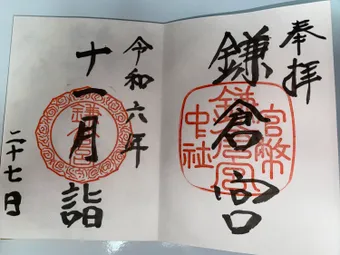 奉拝
鎌倉宮
官幣中社
鎌倉宮
令和六年
十一月詣
二十七日